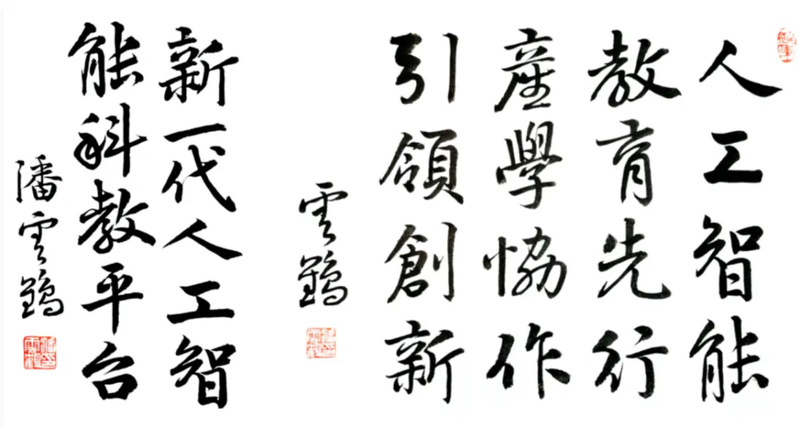 人工智能
教育先行
産學恊作
引領創新
雲鶴
新一代人工智
能科教平台
潘雲鶴